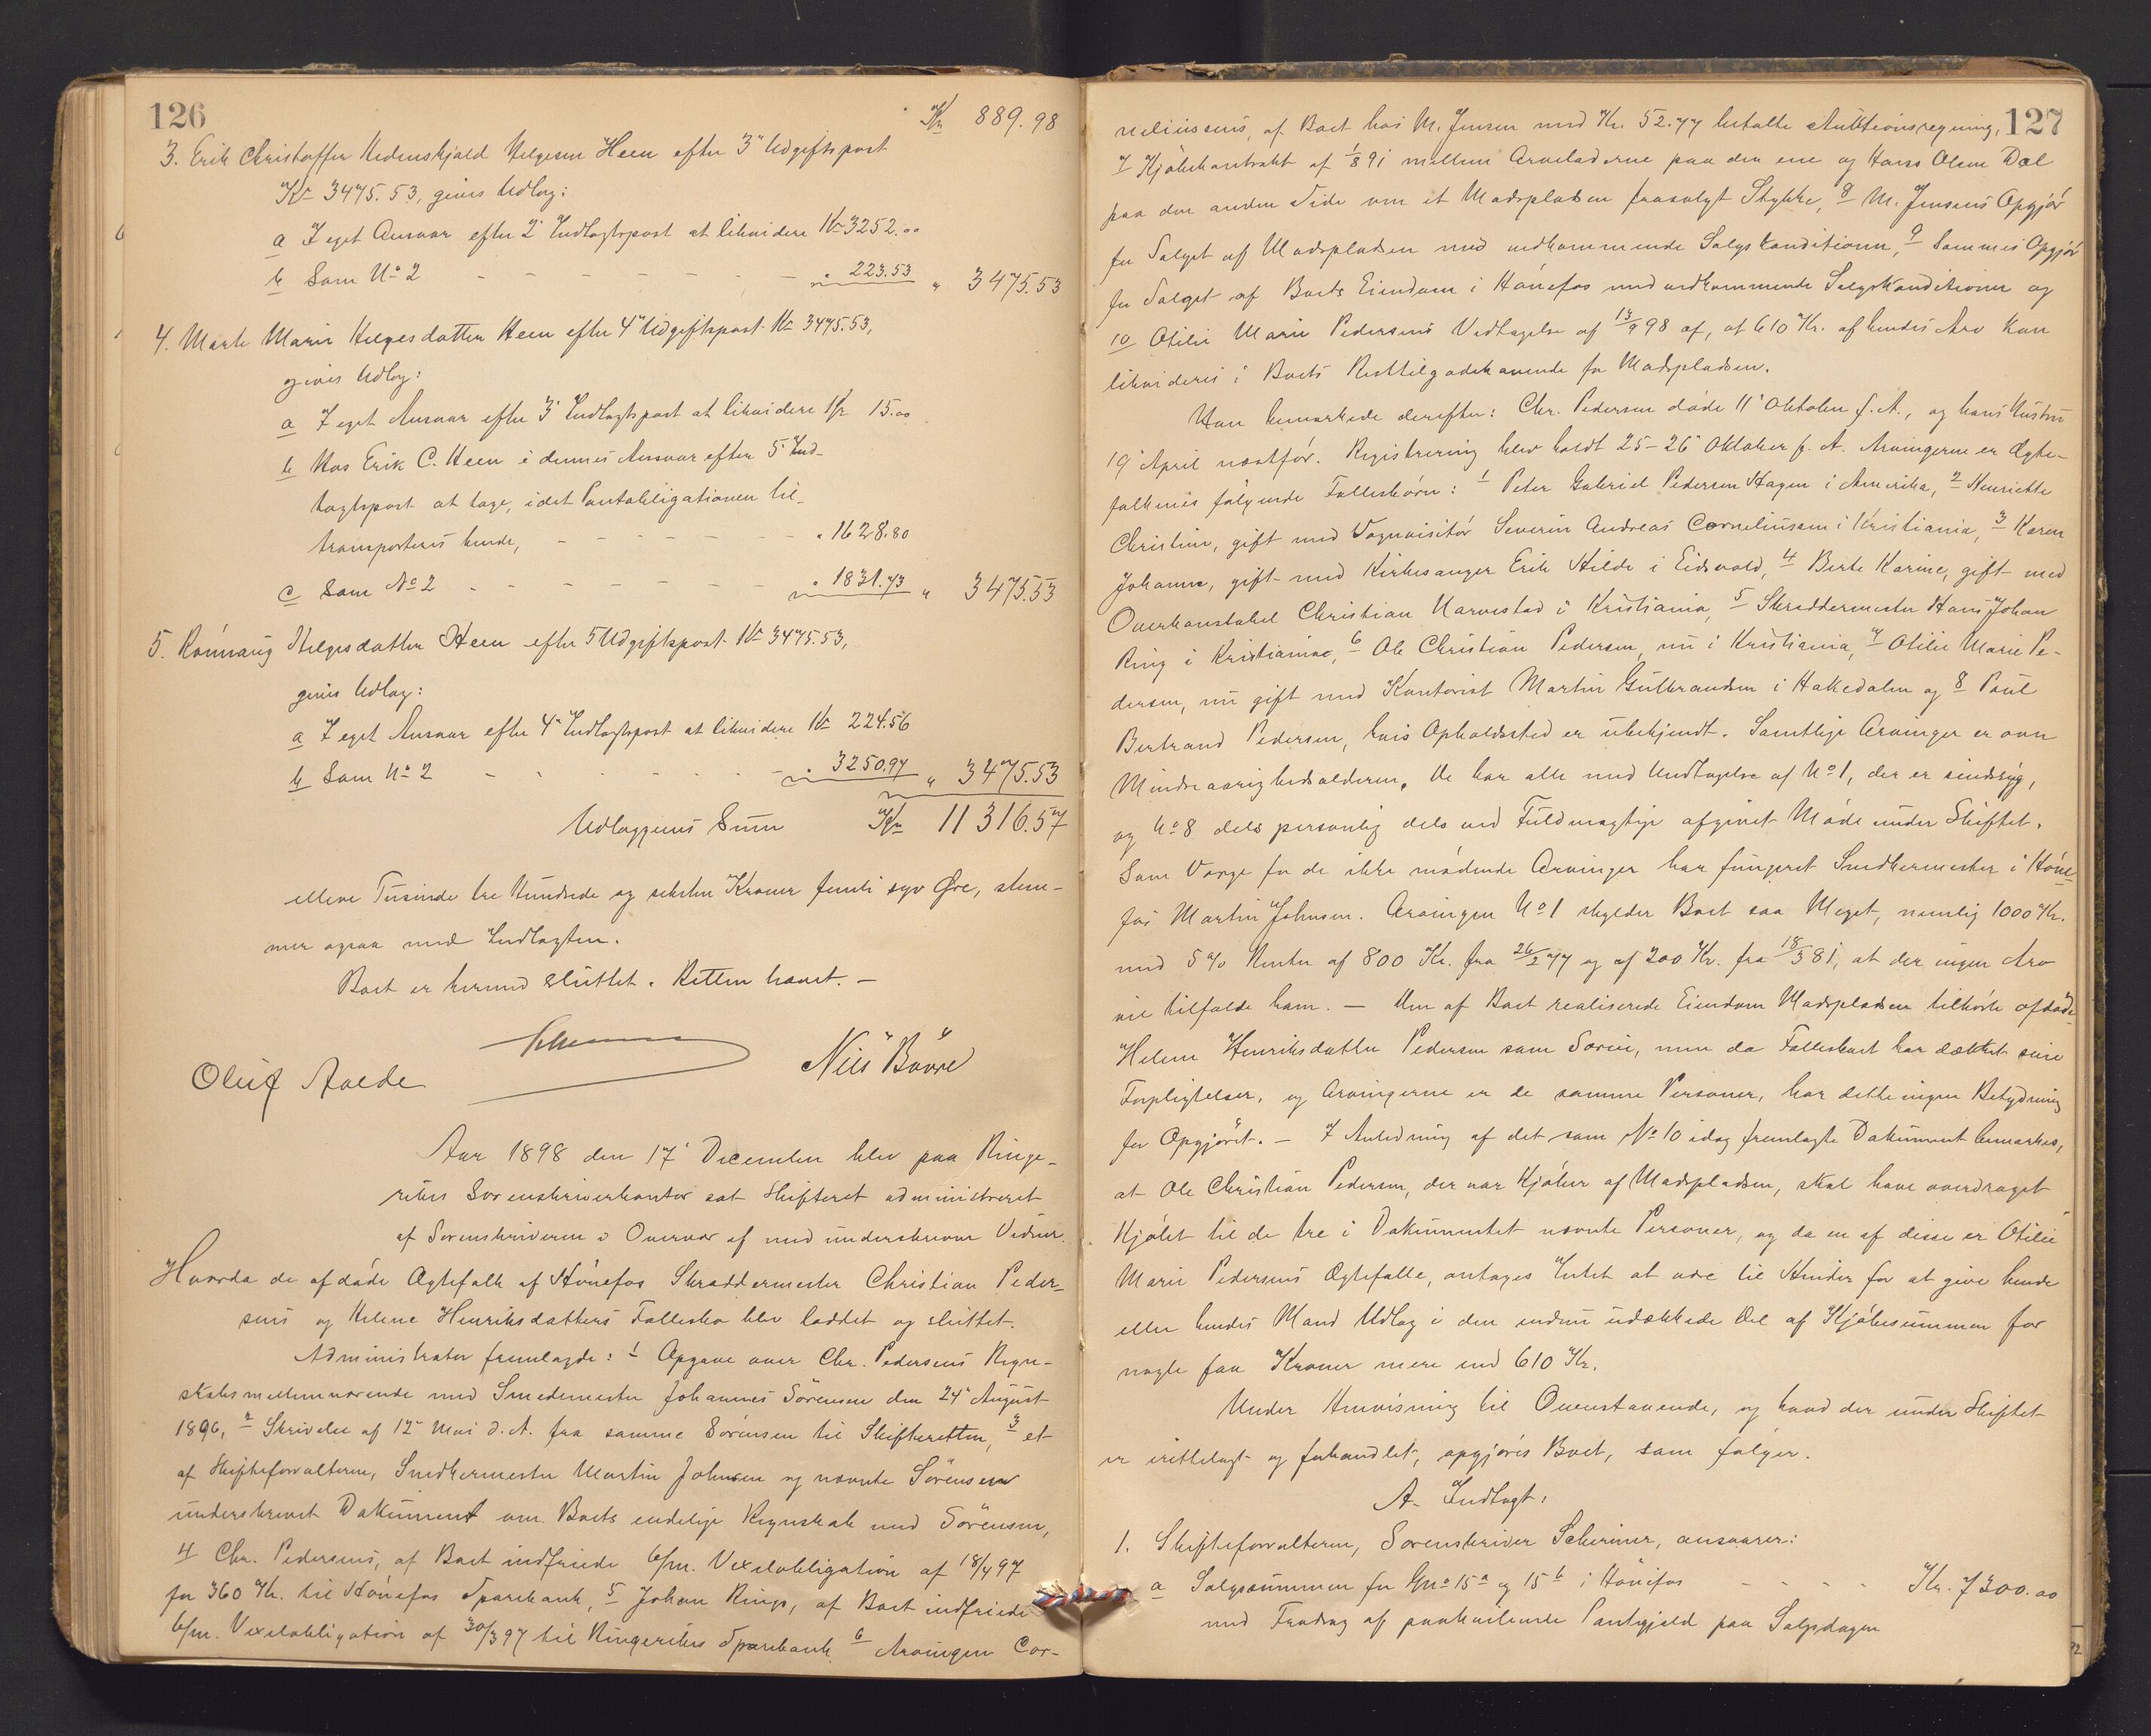 126
Kr 889.98
3. Erik Christoffer Hedenskjold Helgesen Heen efter 3' Udgiftspost
Kr 3475.53, gives Udlæg:
a I eget Ansvar efter 2' Indtægtspost at likvidere Kr 3252.00
b Som No 2 - - - - - - - " 223.53 " 3475.53
4. Marte Marie Helgesdatter Heen efter 4' Udgiftspost Kr 3475.53,
gives Udlæg:
a I eget Ansvar efter 3' Indtægtspost at likvidere Kr 15.00
b Hos Erik C. Heen i dennes Ansvar efter 5' Ind-
tægtspost at tage, idet Pantobligationen til-
transporteres hende, - - - - - - - " 1628.80
c Som No 2 - - - - - - " 1831.73 " 3475.53
5. Rønnaug Helgesdatter Heen efter 5 Udgiftspost Kr 3475.53,
gives Udlæg:
a I eget Ansvar efter 4' Indtægtspost at likvidere Kr 224.56
b Som No 2 - - - - - - " 3250.97 " 3475.53
Udlæggenes Sum Kr 11316.57
elleve Tusinde tre Hundrede og seksten Kroner femti syv Øre, stem-
mer ogsaa med Indtægten.
Boet er hermed sluttet. Retten hævet. —
Oluf Aalde Nils Bøvre
Aar 1898 den 17' December blev paa Ringe-
rikes Sorenskriverkontor sat Skifteret administreret
af Sorenskriveren i Overvær af med underskrevne Vidner.
Hvorda de afdøde Ægtefolk af Hønefos Skræddermester Christian Peder-
sens og Helene Henriksdatters Fællesbo blev foddet og sluttet.
Administrator fremlagde: 1 Opgave over Chr. Pedersens Regn-
skabsmellemværende med Smedemester Johannes Sørensen den 24' August
1896, 2 Skrivelse af 12' Mai d. A. fra samme Sørensen til Skifteretten, 3 et
af Skifteforvalteren, Snedkermester Martin Johnsen og nævnte Sørensen
underskrevet Dokument om Boets endelige Regnskab med Sørensen,
4 Chr. Pedersens, af Boet indfriede 6/m. Vexelobligation af 18/4 97
for 360 Kr. til Hønefos Sparebank, 5 Johan Rings, af Boet indfriede
6/m. Vexelobligation af 30/3 97 til Ringerikes Sparebank 6 Arvingen Cor-
127
neliussens, af Boet hos M. Jensen med Kr. 52.77 betalte Auktionsregning,
7 Kjøbekontrakt af 1/8 91 mellem Arveladerne paa den ene og Hans Olsen Dal
paa den anden Side om et Madspladsen frasolgt Stykke, 8 M. Jensens Opgjør
for Salget af Madspladsen med vedkommende Salgskonditioner, 9 Sammes Opgjør
for Salget af Boets Eiendom i Hønefos med vedkommende Salgskonditioner og
10 Otilie Marie Pedersens Vedtagelse af 13/9 98 af, at 610 Kr. af hendes Arv kan
likvideres i Boets Resttilgodehavende for Madspladsen.
Han bemærkede derefter: Chr. Pedersen døde 11' Oktober f. A., og hans Hustru
19' April næstfør. Registrering blev holdt 25-26' Oktober f. A. Arvingerne er Ægte-
folkenes følgende Fællesbørn: 1 Peter Gabriel Pedersen Hagen i Amerika, 2 Henriette
Christine, gift med Vognvisitør Severin Andreas Corneliussen i Kristiania, 3 Karen
Johanne, gift med Kirkesanger Erik Hilde i Eidsvold, 4 Berte Karine, gift med
Overkonstabel Christian Harvestad i Kristiania, 5 Skræddermester Hans Johan
Ring i Kristiania, 6 Ole Christian Pedersen, nu i Kristiania, 7 Otilie Marie Pe-
dersen, nu gift med Kontorist Martin Gulbrandsen i Hakedalen og 8 Paul
Bertrand Pedersen, hvis Opholdssted er ubekjendt. Samtlige Arvinger er over
Mindreaarighedsalderen. De har alle med Undtagelse af No 1, der er sindssyg,
og No 8 dels personlig dels ved Fuldmægtige afgivet Møde under Skiftet.
Som Værge for de ikke mødende Arvinger har fungeret Snedkermester i Høne-
fos Martin Johnsen. Arvingen No 1 skylder Boet saa Meget, nemlig 1000 Kr.
med 5 % Renter af 800 Kr. fra 26/2 77 og af 200 Kr. fra 18/3 81, at der ingen Arv
vil tilfalde ham. — Den af Boet realiserede Eiendom Madspladsen tilhørte afdøde
Helene Henriksdatter Pedersen som Særeie, men da Fællesboet har dækket sine
Forpligtelser, og Arvingerne er de samme Personer, har dette ingen Betydning
for Opgjøret. — I Anledning af det som No 10 idag fremlagte Dokument bemærkes,
at Ole Christian Pedersen, der var Kjøber af Madspladsen, skal have overdraget
Kjøbet til de tre i Dokumentet nævnte Personer, og da en af disse er Otilie
Marie Pedersens Ægtefælle, antages Intet at være til Hinder for at give hende
eller hendes Mand Udlæg i den endnu udækkede Del af Kjøbesummen for
nogle faa Kroner mere end 610 Kr.
Under Henvisning til Ovenstaaende, og hvad der under Skiftet
er irettelagt og forhandlet, opgjøres Boet, som følger.
A. Indtægt.
1. Skifteforvalteren, Sorenskriver Scheriner, ansvarer:
a Salgssummen for Gno 15a og 15b i Hønefos - - - - Kr. 7300.00
med Fradrag af paahvilende Pantegjæld paa Salgsdagen